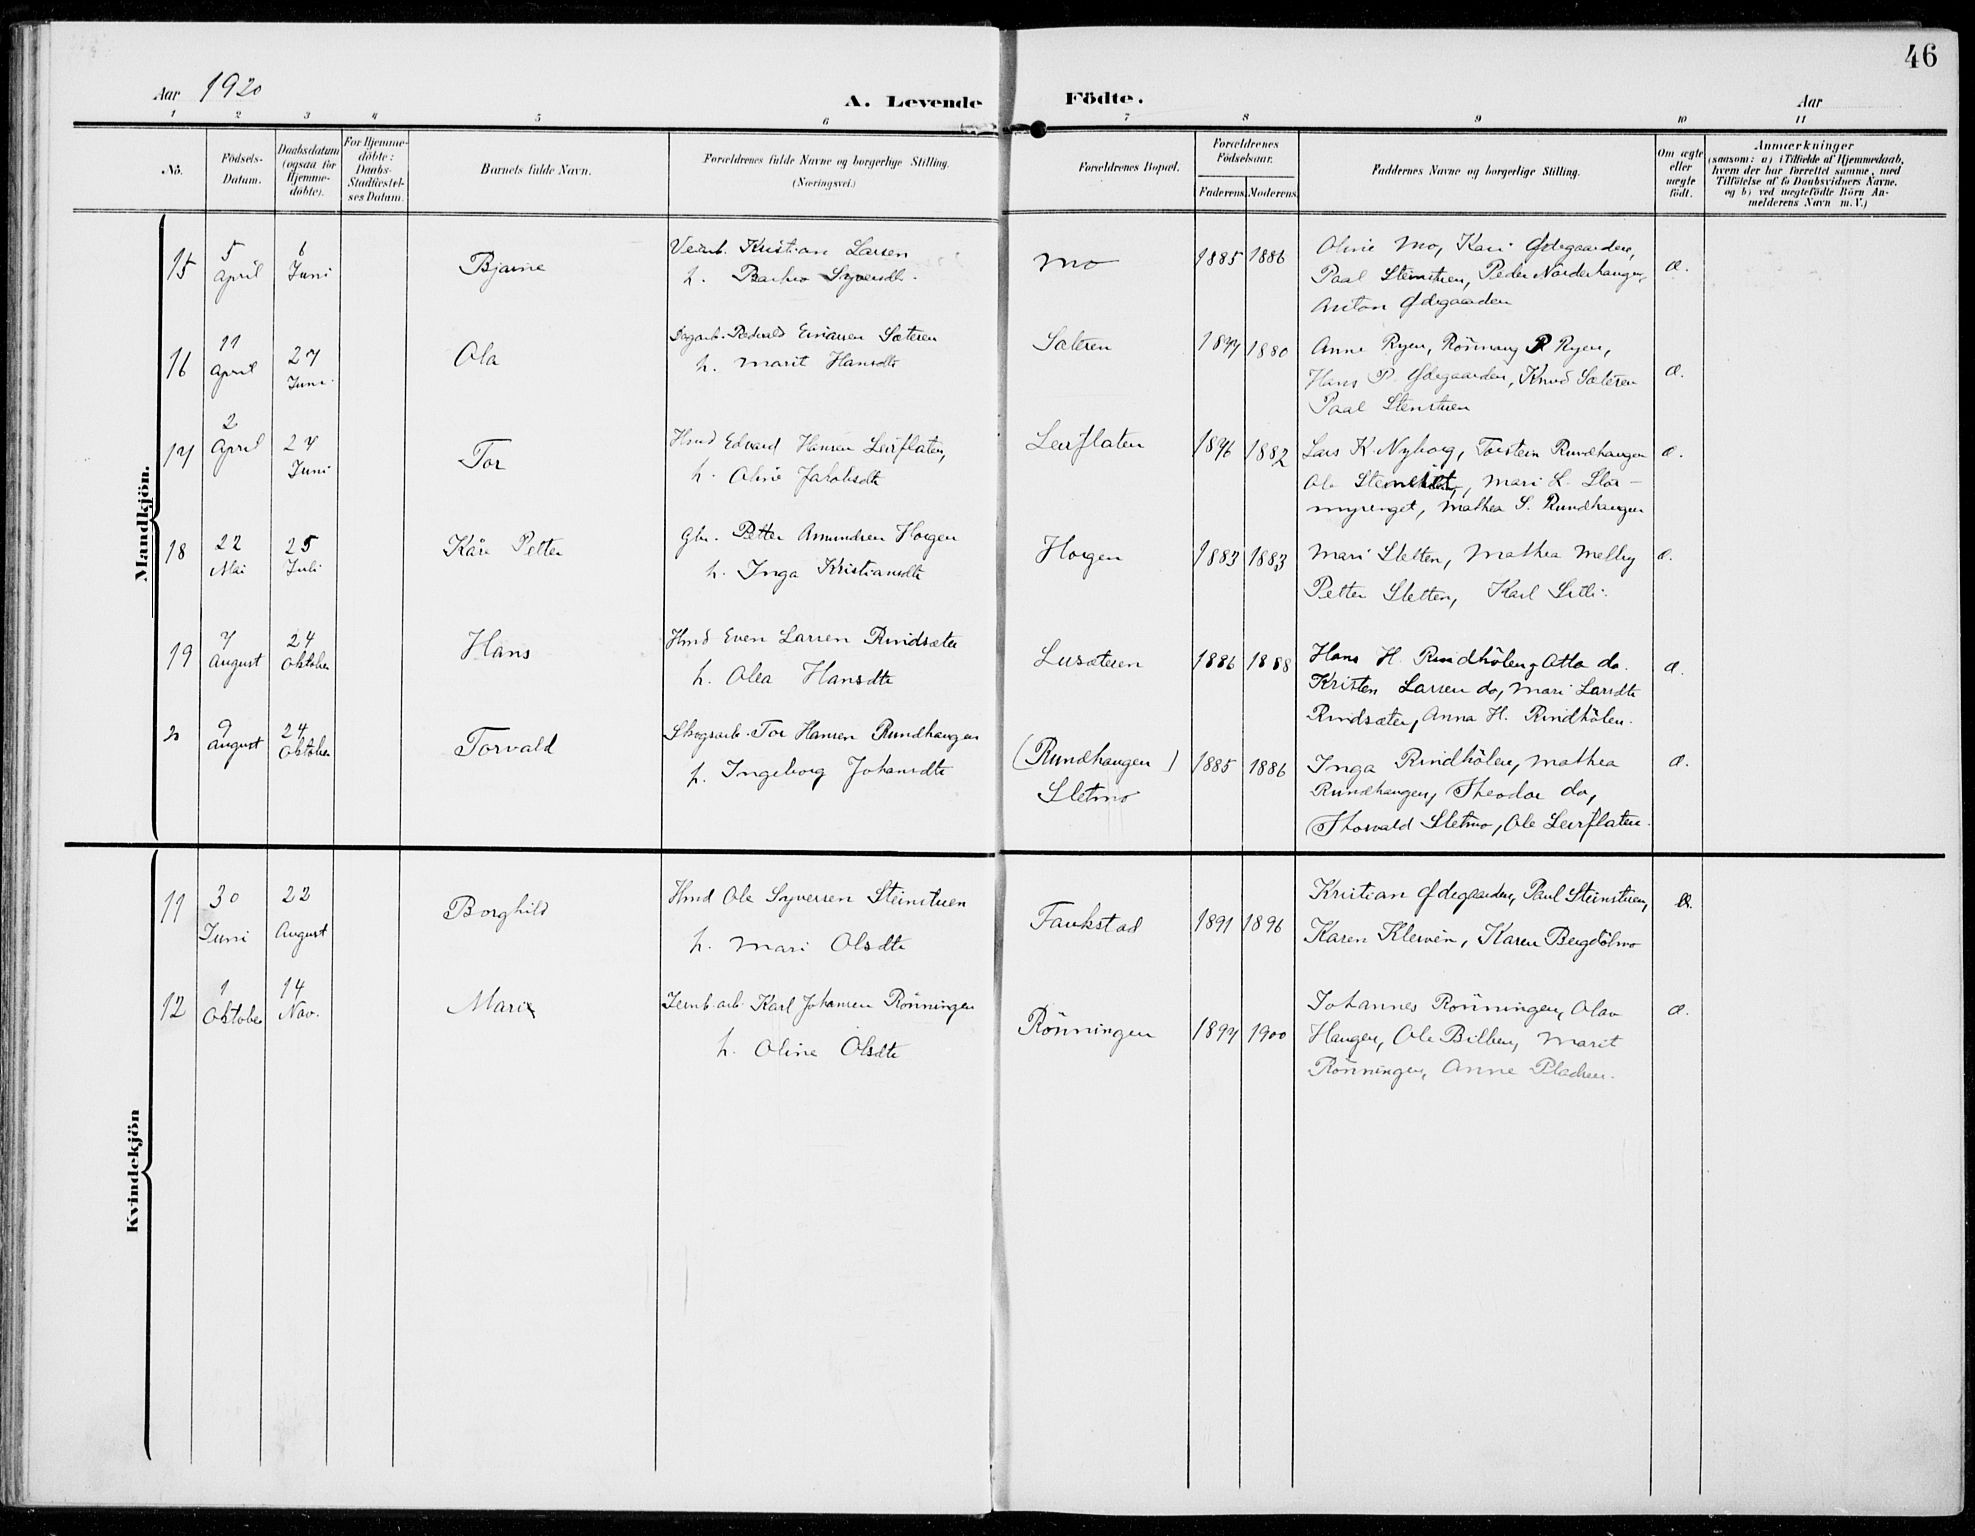 46
Aar 1920
A. Levende Födte.
Aar
1 2 3 4 5 6 7 8 9 10 11
No.
Födsels-Datum.
Daabsdatum (ogsaa for Hjemmedöbte).
For Hjemmedöbte: Daabs-Stadfæstelses Datum.
Barnets fulde Navn.
Forældrenes fulde Navne og borgerlige Stilling.
(Næringsvei.)
Forældrenes Bopæl.
Forældrenes Födselsaar.
Faderens Moderens
Faddernes Navne og borgerlige Stilling.
Om ægte eller uægte födt.
Anmærkninger
(saasom: a) i Tilfælde af Hjemmedaab,
hvem der har forrettet samme, med
Tilföielse af to Daabsvidners Navne,
og b) ved uægtefödte Börn An-
melderens Navn m. V.)
Mandkjön.
15 5 April 6 Juni Bjarne
Kristian Larsen
h.
Mo 1885 1886
Oline Mo, Kari Ødegaarden,
Paal Steinstuen, Peder Nörderhaugen,
Anton Ødegaarden
æ.
16 11 April 27 Juni Ola
Dagarb. Redvald Einarsen Sæteren
h. Marit Hansdtr
Sæteren 1877 1880
Anne Ryen, Rönnaug P. Ryen,
Hans P. Ødegaarden, Knud Sæteren
Paal Stenstuen
æ.
17 2 April 27 Juni Tor
Hmd Edvard Hansen Leirflaten,
h. Oline Jakobsdtr
Leirflaten 1876 1882
Lars K. Nyborg, Torstein Rundhaugen
Ole, Mari L. Slaa-
myrenget, Mathea S. Rundhaugen
æ.
18 22 Mai 25 Juli Kåre Petter
Gbr. Petter Amundsen Horgen
h. Inga Kristiansdtr
Horgen 1883 1883
Mari Sletten, Mathea Melby
Petter Sletten, Karl
æ.
19 7 August 24 Oktober Hans
Hmd Even Larsen Rindsæter
h. Olea Hansdtr
Lusæteren 1886 1888
Hans H. Rindhölen, Otto do.
Kristen Larsen do, Mari Larsdtr
Rindsæter, Anna H. Rindhölen.
æ.
20 9 August 24 Oktober Torvald
Skogsarb. Tor Hansen Rundhaugen
h. Ingeborg Johansdtr
(Rundhaugen)
Sletmo
1885 1886
Inga Rindhölen, Mathea
Rundhaugen, Theodor do,
Thorvald Sletmo, Ole Leirflaten.
æ.
Kvindekjön
11 30 Juni 22 August Borghild
Hmd Ole Syversen Steinstuen
h. Mari Olsdtr
Faukstad 1891 1896
Kristian Ødegaarden, Paul Steinstuen,
Karen Kleiven, Karen Bergdölmo
æ.
12 1 Oktober 14 Nov. Mari
Jernb.arb. Karl Johansen Rönningen
h. Oline Olsdtr
Rönningen 1897 1900
Johannes Rönningen, Olav
Haugen, Ole Bilben, Marit
Rönningen, Anne Pladsen.
æ.